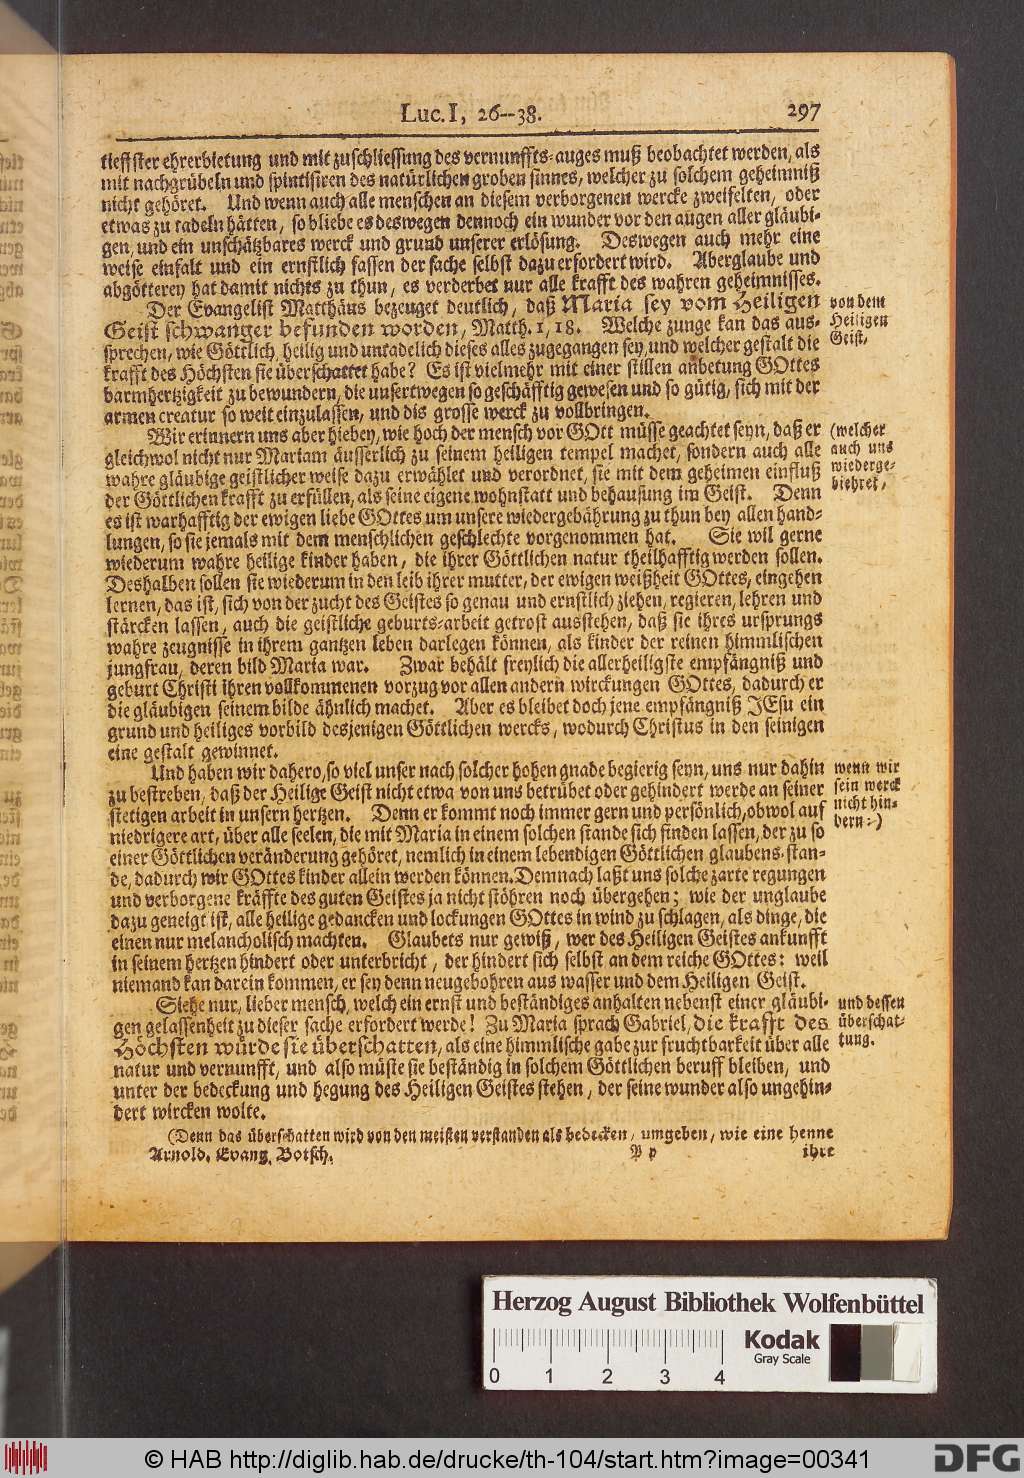 Luc. I, 26--38. 297
tieffster ehrerbietung und mit zuschliessung des vernunffts-auges muß beobachtet werden, als
mit nachgrübeln und spintisiren des natürlichen groben sinnes, welcher zu solchem geheimniß
nicht gehöret. Und wenn auch alle menschen an diesem verborgenen wercke zweifelten, oder
etwas zu tadeln hätten, so bliebe es deswegen dennoch ein wunder vor den augen aller gläubi-
gen, und ein unschätzbares werck und grund unserer erlösung. Deswegen auch mehr eine
weise einfalt und ein ernstlich fassen der sache selbst dazu erfordert wird. Aberglaube und
abgötterey hat damit nichts zu thun, es verderbet nur alle krafft des wahren geheimnisses.
Der Evangelist Matthäus bezeuget deutlich, daß Maria sey vom Heiligen
Geist schwanger befunden worden, Matth. 1, 18. Welche zunge kan das aus-
sprechen, wie Göttlich, heilig und untadelich dieses alles zugegangen sey, und welcher gestalt die
krafft des Höchsten sie überschattet habe? Es ist vielmehr mit einer stillen anbetung GOttes
barmhertzigkeit zu bewundern, die unsertwegen so geschäfftig gewesen und so gütig, sich mit der
armen creatur so weit einzulassen, und dis grosse werck zu vollbringen.
von dem
Heiligen
Geist,
Wir erinnern uns aber hiebey, wie hoch der mensch vor GOtt müsse geachtet seyn, daß er
gleichwol nicht nur Mariam äusserlich zu seinem heiligen tempel machet, sondern auch alle
wahre gläubige geistlicher weise dazu erwählet und verordnet, sie mit dem geheimen einfluß
der Göttlichen krafft zu erfüllen, als seine eigene wohnstatt und behausung im Geist. Denn
es ist warhafftig der ewigen liebe GOttes um unsere wiedergebährung zu thun bey allen hand-
lungen, so sie jemals mit dem menschlichen geschlechte vorgenommen hat. Sie wil gerne
wiederum wahre heilige kinder haben, die ihrer Göttlichen natur theilhafftig werden sollen.
Deshalben sollen sie wiederum in den leib ihrer mutter, der ewigen weißheit GOttes, eingehen
lernen, das ist, sich von der zucht des Geistes so genau und ernstlich ziehen, regieren, lehren und
stärcken lassen, auch die geistliche geburts-arbeit getrost ausstehen, daß sie ihres ursprungs
wahre zeugnisse in ihrem gantzen leben darlegen können, als kinder der reinen himmlischen
jungfrau, deren bild Maria war. Zwar behält freylich die allerheiligste empfängniß und
geburt Christi ihren vollkommenen vorzug vor allen andern wirckungen GOttes, dadurch er
die gläubigen seinem bilde ähnlich machet. Aber es bleibet doch jene empfängniß JEsu ein
grund und heiliges vorbild desjenigen Göttlichen wercks, wodurch Christus in den seinigen
eine gestalt gewinnet.
(welcher
auch uns
wiederge-
biehret,
Und haben wir dahero, so viel unser nach solcher hohen gnade begierig seyn, uns nur dahin
zu bestreben, daß der Heilige Geist nicht etwa von uns betrübet oder gehindert werde an seiner
stetigen arbeit in unsern hertzen. Denn er kommt noch immer gern und persönlich, obwol auf
niedrigere art, über alle seelen, die mit Maria in einem solchen stande sich finden lassen, der zu so
einer Göttlichen veränderung gehöret, nemlich in einem lebendigen Göttlichen glaubens-stan-
de, dadurch wir GOttes kinder allein werden können. Demnach laßt uns solche zarte regungen
und verborgene kräffte des guten Geistes ja nicht stöhren noch übergehen; wie der unglaube
dazu geneigt ist, alle heilige gedancken und lockungen GOttes in wind zu schlagen, als dinge, die
einen nur melancholisch machten. Glaubets nur gewiß, wer des Heiligen Geistes ankunfft
in seinem hertzen hindert oder unterbricht, der hindert sich selbst an dem reiche GOttes: weil
niemand kan darein kommen, er sey denn neugebohren aus wasser und dem Heiligen Geist.
wenn wir
sein werck
nicht hin-
dern:)
Siehe nur, lieber mensch, welch ein ernst und beständiges anhalten nebenst einer gläubi-
gen gelassenheit zu dieser sache erfordert werde! Zu Maria sprach Gabriel, die krafft des
Höchsten würde sie überschatten, als eine himmlische gabe zur fruchtbarkeit über alle
natur und vernunfft, und also müste sie beständig in solchem Göttlichen beruff bleiben, und
unter der bedeckung und hegung des Heiligen Geistes stehen, der seine wunder also ungehin-
dert wircken wolte.
und dessen
überschat-
tung.
(Denn das überschatten wird von den meisten verstanden als bedecken, umgeben, wie eine henne
Arnold. Evang. Botsch. P p ihre
Herzog August Bibliothek Wolfenbüttel
Kodak
Gray Scale
0 1 2 3 4
© HAB http://diglib.hab.de/drucke/th-104/start.htm?image=00341
DFG